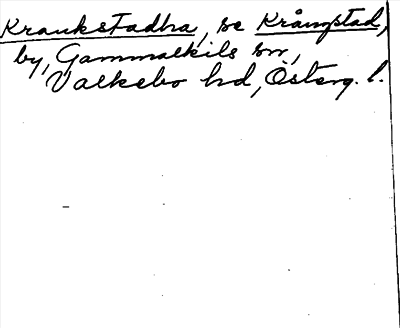 Kraukstadha, se Krångstad,
by, Gammalkils sn,
Valkebo hd, Österg. l.